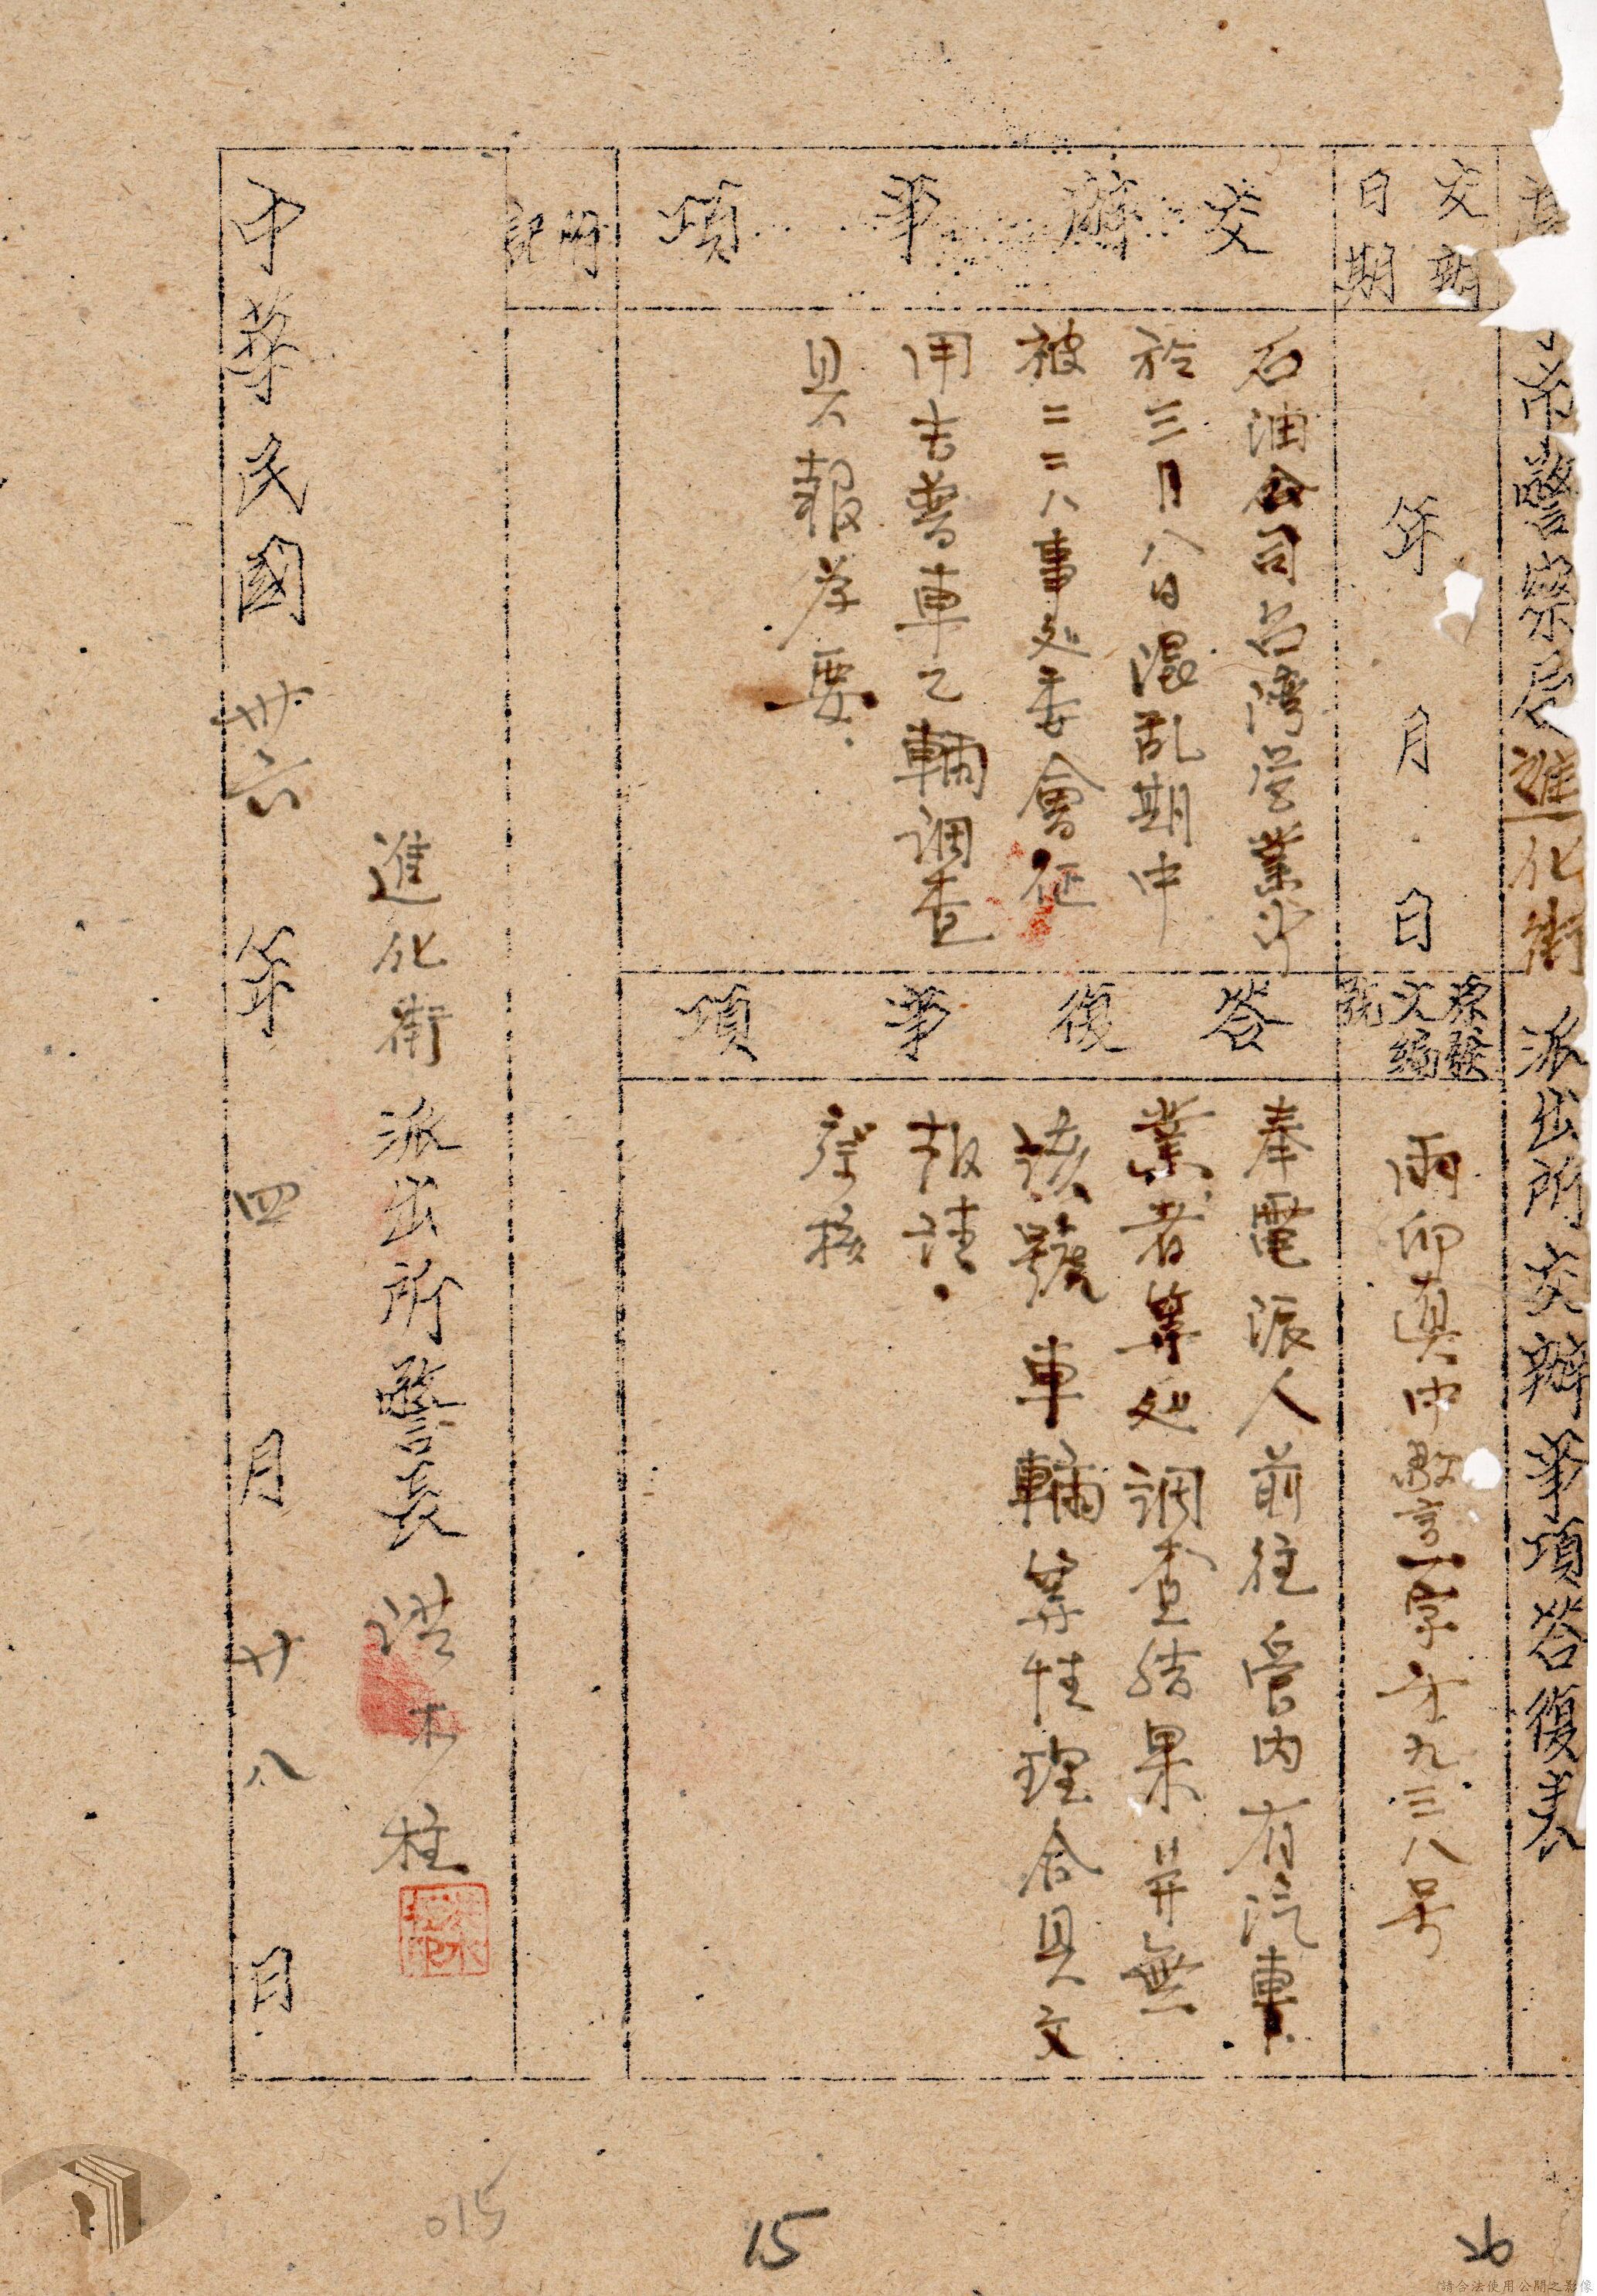 市警察局進化街派出所交辦事項答復表
交辦
日期
年月日
來發
文編
號
雨卯真中警字才九三八号
交辦事項
石油公司台湾営業所
於三月八日混乱期中
被二二八事処委會征
用去曹車乙輛調查
具報為要
答復事項
奉電派人前往管内有汽車
業者等処調查結果并無
該號車輛等性理合具文
报請
察核
附記
進化街派出所警長洪水柱
中華民國卅六年四月廿八日
015
15
26
請合法使用公開之影像